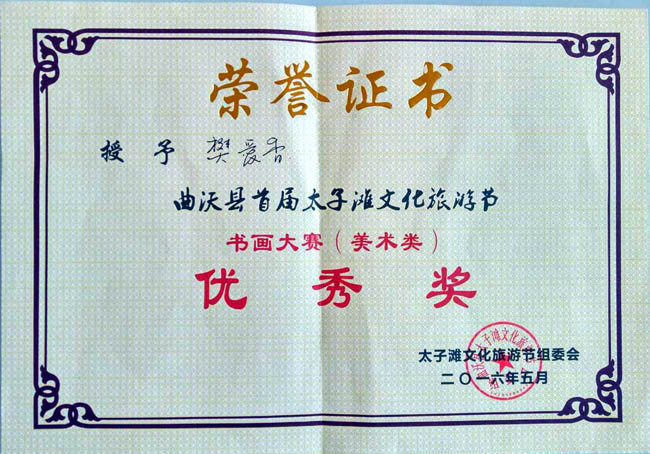 荣誉证书
授予 樊爱香
曲沃县首届太子滩文化旅游节
书画大赛（美术类）
优秀奖
太子滩文化旅游节组委会
二〇一六年五月